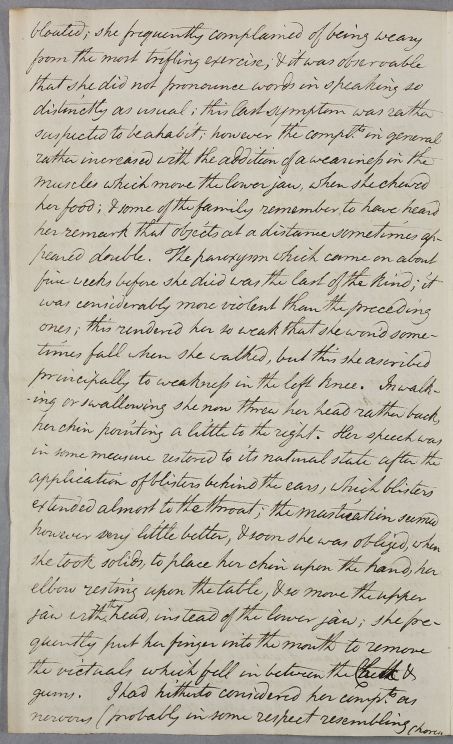 bloated; she frequently complained of being weary
from the most trifling exercise, & it was observable
that she did not pronounce words in speaking so
distinctly as usual; this last symptom was rather
suspected to be a habit; however the compl.ts in general
rather increased with the addition of a weariness in the
muscles which move the lower jaw, when she chewed
her food; & some of the family remember, to have heard
her remark that objects at a distance sometimes ap-
peared double. The paroxysm which came on about
five weeks before she died was the last of the kind; it
was considerably more violent than the preceding
ones; this rendered her so weak that she would some-
times fall when she walked, but this she ascribed
principally to weakness in the left knee. In walk-
-ing or swallowing she now threw her head rather back,
her chin pointing a little to the right. Her speech was
in some measure restored to its natural state after the
application of blisters behind the ears, which blisters
extended almost to the throat; the mastication seemed
however very little better, & soon she was obliged, when
she took solids, to place her chin upon the hand, her
elbow resting upon the table, & so move the upper
jaw with the head, instead of the lower jaw; she fre-
quently put her finger into the mouth to remove
the victuals which fell in between the Cheek &
gums. I had hitherto considered her compl.ts as
nervous (probably in some respect resembling chorea